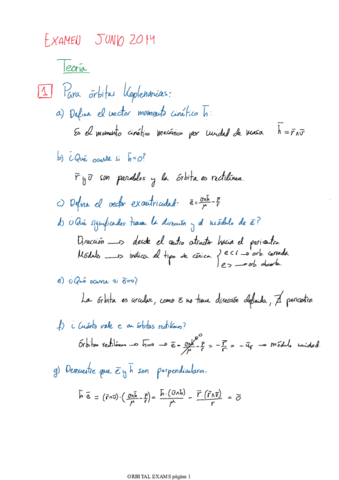 EXAMEN JUNIO 2014
Teoría
1 Para órbitas Keplerianas:
a) Defina el vector momento cinético h̄:
Es el momento cinético mecánico por unidad de masa h̄ = r̄∧v̄
b) ¿Qué ocurre si h̄=0?
r̄ y v̄ son paralelos y la órbita es rectilínea.
c) Defina el vector excentricidad: ē = v̄∧h̄/μ - r̄/r
d) ¿Qué significados tienen la dirección y el módulo de ē?
Dirección → desde el centro atractor hacia el pericentro
Módulo → indica el tipo de cónica { e<1 → orb. cerrada
e> → orb abierta
e) ¿Qué ocurre si ē=0?
La órbita es circular, como ē no tiene dirección definida, ∄ pericentro
f) ¿Cuánto vale e en órbitas rectilíneas?
Órbitas rectilíneas → h̄=0 → ē = v̄∧h̄/μ - r̄/r = - r̄/r = - ūr → módulo unidad.
g) Demuestre que ē y h̄ son perpendiculares.
h̄·ē = (r̄∧v̄)·(v̄∧h̄/μ - r̄/r) = h̄·(v̄∧h̄)/μ - r̄·(r̄∧v̄)/r = 0
ORBITAL EXAMS página 1